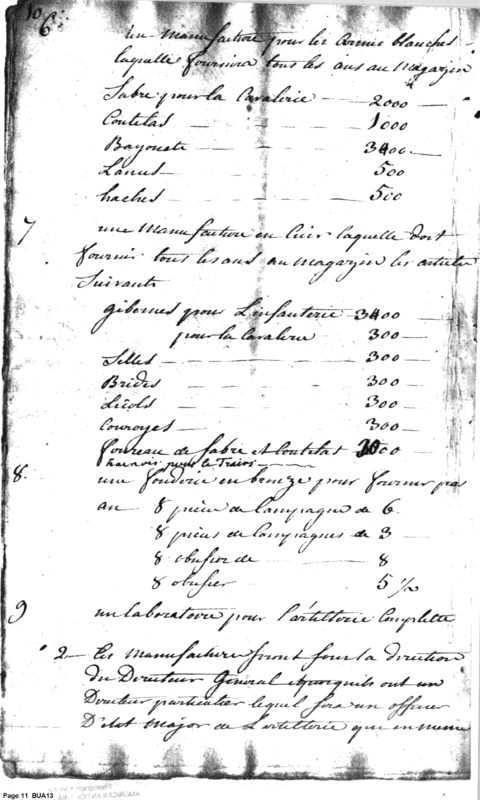 10
6
un manufacture pour les Armes blanches
laquelle fournira tous les ans au Magazin
Sabre pour la Cavalerie — 2000 —
Coutelas — — — 1000
Bayonete — — — 3400 —
Lances — — — 500
haches — — — 500
7 une Manufacture en Cuir laquelle doit
fournir tous les ans au Magazin les articles
Suivants
gibernes pour L'infanterie 3400 —
pour la Cavalerie 300 —
Selles — — — 300 —
Brides — — — 300
Licols — — — 300
Couroyes — — — 300 —
foureau de Sabre et Coutelas 3000
harnois pour le Train —
8. une fonderie en bronze pour fournir par
an 8 pièces de Campagne de 6
8 pièces de Campagnes de 3 —
8 obusier de — 8
8 obusier — 5 1/2
9 un laboratoire pour l'artillerie Complette
2 — Les manufactures seront sous la direction
du Directeur Général auxquels ont un
Directeur particulier lequel sera un officier
D'état Major de L'artillerie qui en meme
Page 11 BUA13